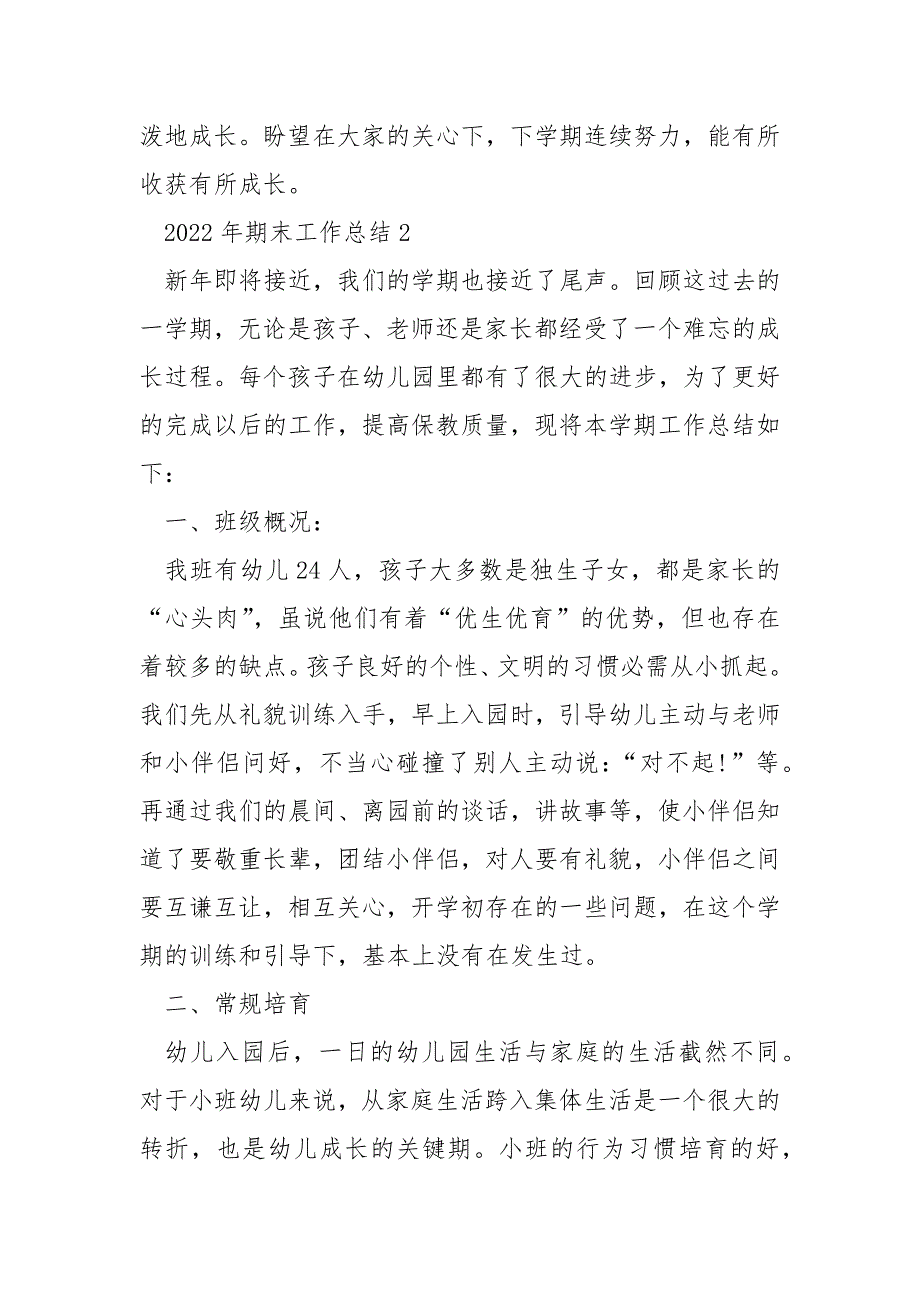 泼地成长。盼望在大家的关心下，下学期连续努力，能有所
收获有所成长。
2022 年期末工作总结 2
新年即将接近，我们的学期也接近了尾声。回顾这过去的
一学期，无论是孩子、老师还是家长都经受了一个难忘的成
长过程。每个孩子在幼儿园里都有了很大的进步，为了更好
的完成以后的工作，提高保教质量，现将本学期工作总结如
下：
一、班级概况：
我班有幼儿 24 人，孩子大多数是独生子女，都是家长的
“心头肉”，虽说他们有着“优生优育”的优势，但也存在
着较多的缺点。孩子良好的个性、文明的习惯必需从小抓起。
我们先从礼貌训练入手，早上入园时，引导幼儿主动与老师
和小伴侣问好，不当心碰撞了别人主动说：“对不起!”等。
再通过我们的晨间、离园前的谈话，讲故事等，使小伴侣知
道了要敬重长辈，团结小伴侣，对人要有礼貌，小伴侣之间
要互谦互让，相互关心，开学初存在的一些问题，在这个学
期的训练和引导下，基本上没有在发生过。
二、常规培育
幼儿入园后，一日的幼儿园生活与家庭的生活截然不同。
对于小班幼儿来说，从家庭生活跨入集体生活是一个很大的
转折，也是幼儿成长的关键期。小班的行为习惯培育的好，